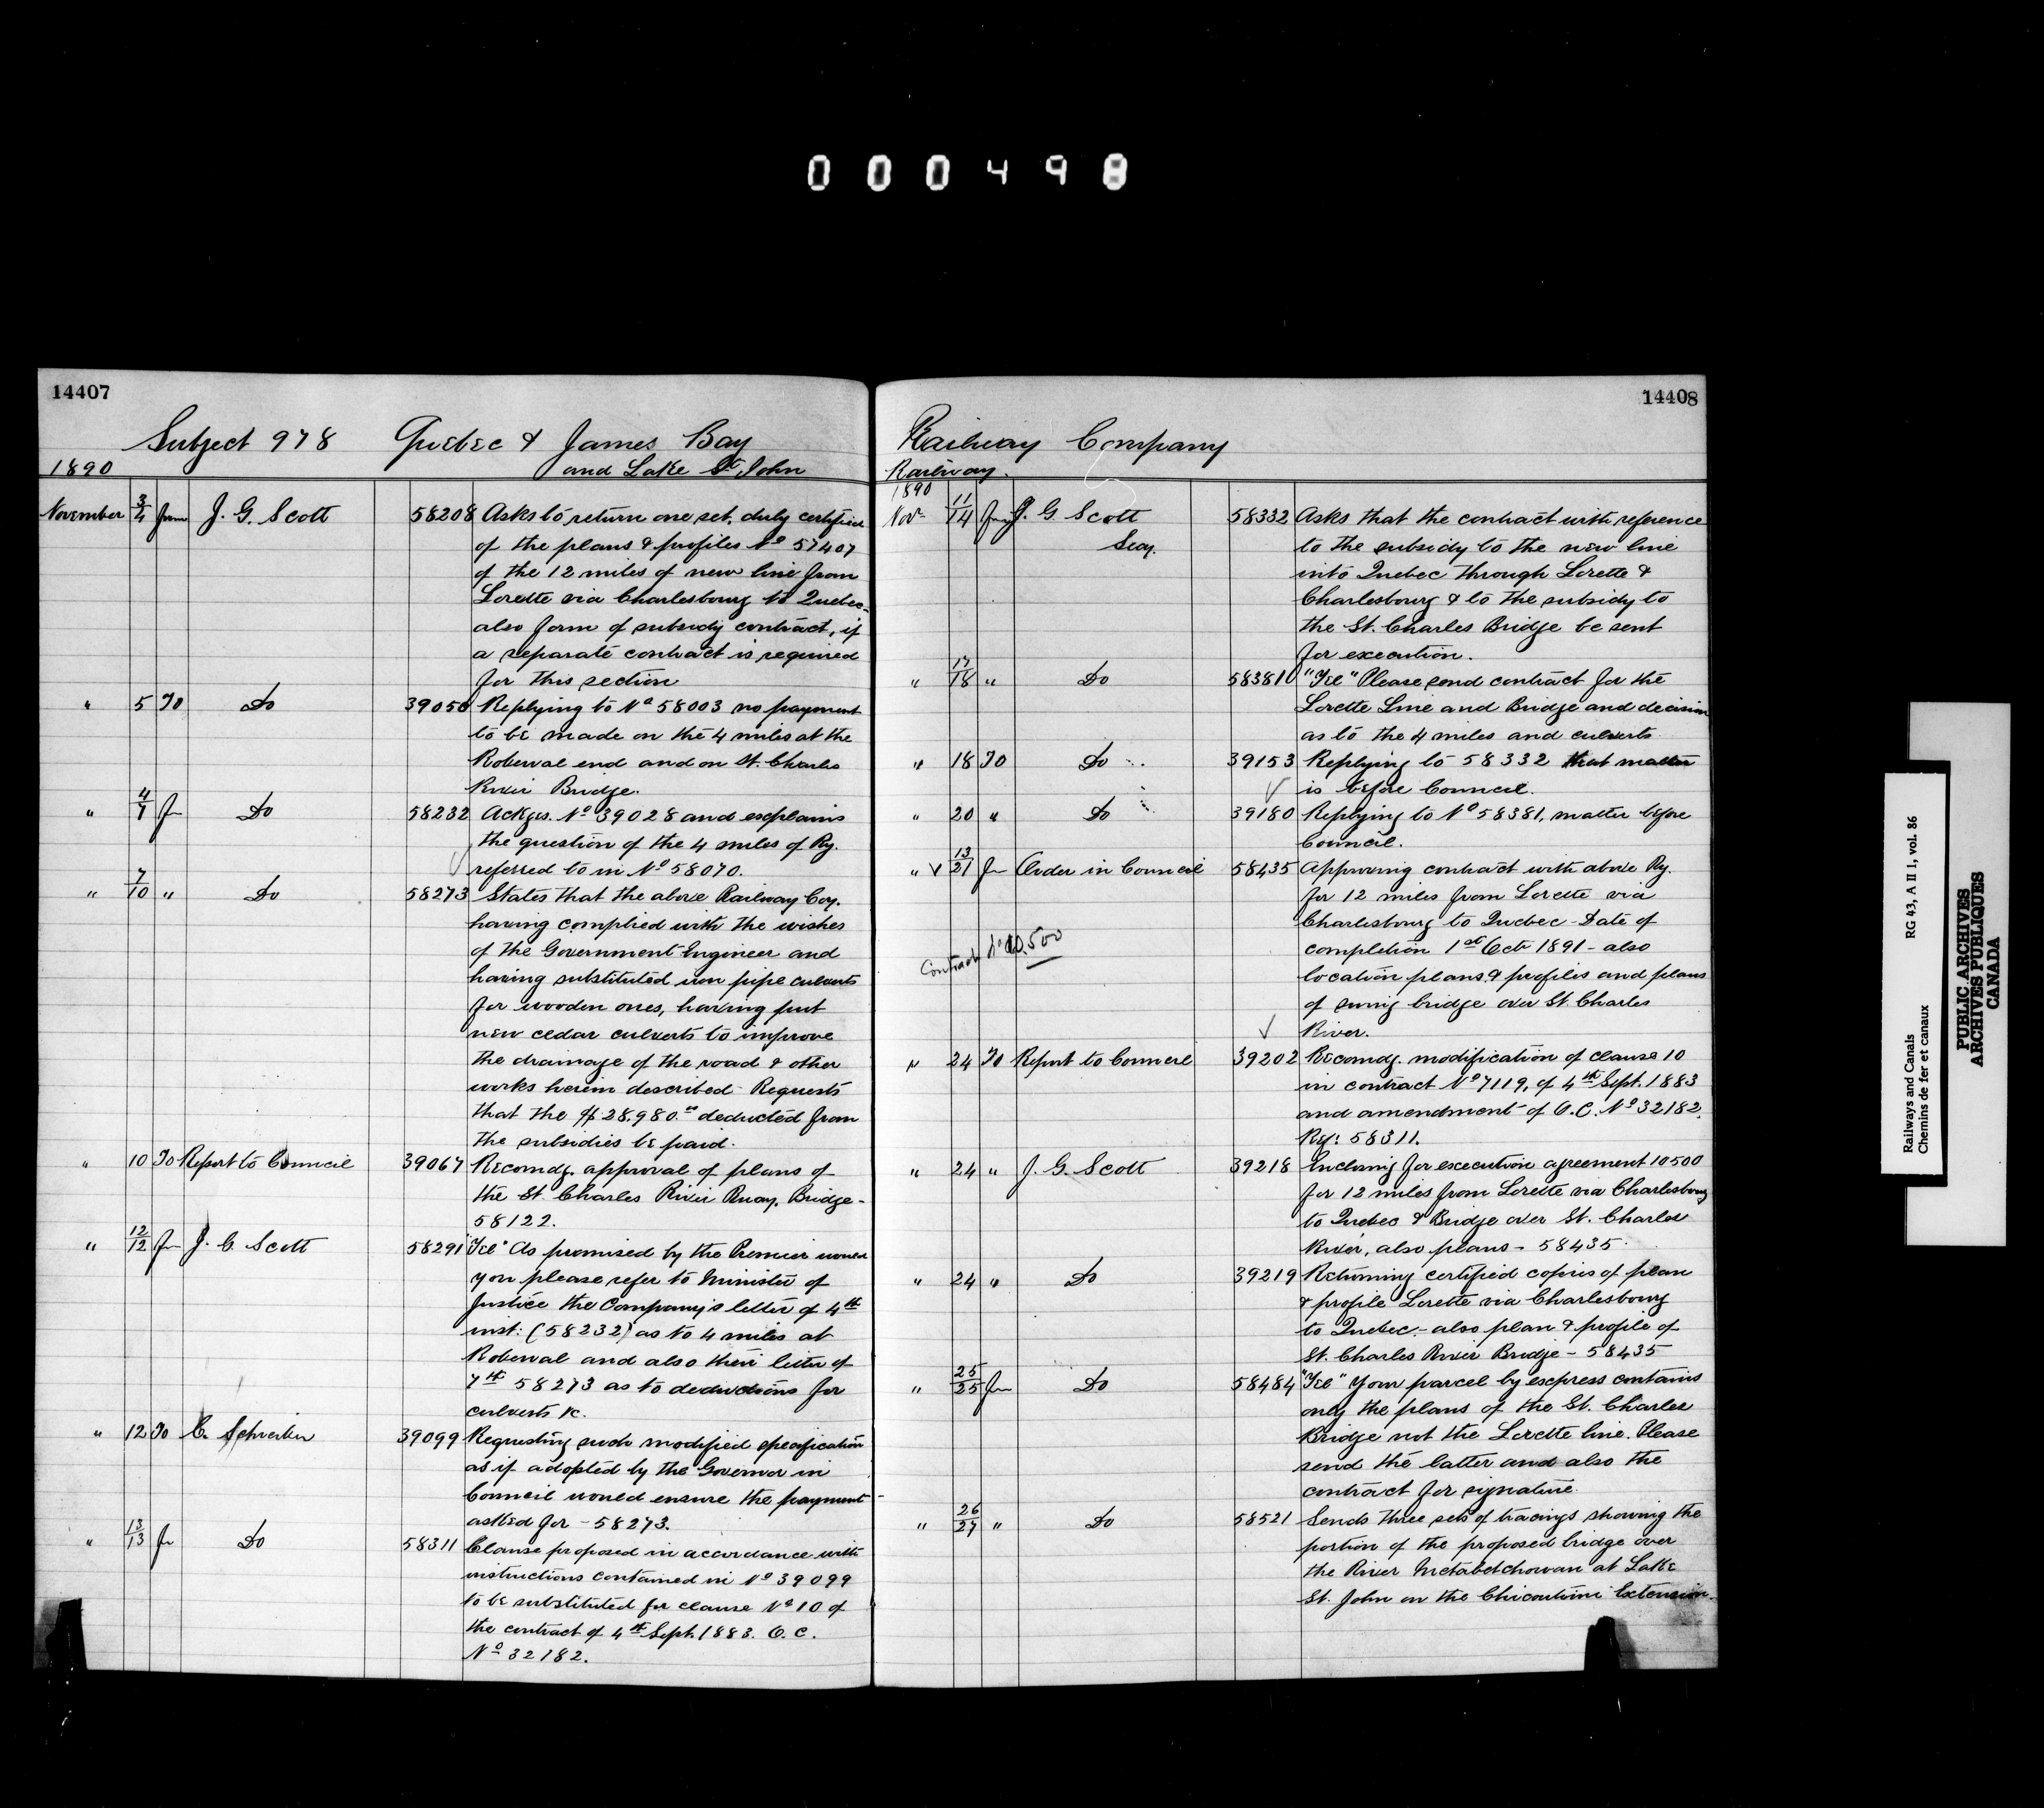 000498
14407
Subject 978 Quebec & James Bay
1890 and Lake St John
November 3/4 from J. G. Scott 58208 Asks to return one set, duly certified
of the plans & profiles No 57407
of the 12 miles of new line from
Lorette via Charlesbourg to Quebec-
also form of subsidy contract, if
a separate contract is required
for this section
" 5 To Do 39050 Replying to No 58003 no payment
to be made on the 4 miles at the
Roberval end and on St. Charles
River Bridge.
" 4/7 fm Do 58232 Ackges. No 39028 and explains
the question of the 4 miles of Ry.
referred to in No 58070.
" 7/10 " Do 58273 States that the above Railway Coy.
having complied with the wishes
of the Government Engineer and
having substituted iron pipe culverts
for wooden ones, having put
new cedar culverts to improve
the drainage of the road & other
works herein described - Requests
that the $28.980.00 deducted from
the subsidies be paid.
" 10 To Report to Council 39067 Recomdg. approval of plans of
the St. Charles River Rway. Bridge-
58122.
" 12/12 fm J. G. Scott 58291 "Tel" As promised by the Premier would
you please refer to Minister of
Justice the Company's letter of 4th
inst: (58232) as to 4 miles at
Roberval and also their letter of
7th 58273 as to deductions for
culverts &c.
" 12 To C. Schreiber 39099 Requesting such modified specification
as if adopted by the Governor in
Council would ensure the payment
asked for - 58273.
" 13/13 fr Do 58311 Clause proposed in accordance with
instructions contained in No 39099
to be substituted for clause No 10 of
the contract of 4th Sept. 1883. O.C.
No 32182.
14408
Railway Company
Railway.
1890
Nov- 11/14 fm J. G. Scott 58332 Asks that the contract with reference
Secy. to the subsidy to the new line
into Quebec through Lorette &
Charlesbourg & to the subsidy to
the St. Charles Bridge be sent
for execution.
" 17/18 " Do 58381 "Tel" Please send contract for the
Lorette Line and Bridge and decision
as to the 4 miles and culverts
" 18 To Do 39153 Replying to 58332 that matter
is before Council.
" 20 " Do 39180 Replying to No 58381, matter before
Council.
" 13/21 fm Order in Council 58435 Approving contract with above Ry.
for 12 miles from Lorette via
Charlesbourg to Quebec - Date of
completion 1st Octr 1891 - also
Contract No 10,500
location plans & profiles and plans
of swing bridge over St. Charles
River.
" 24 To Report to Council 39202 Recomdg. modification of clause 10
in contract No 7119, of 4th Sept. 1883
and amendment of O.C. No 32182.
Ref: 58311.
" 24 " J. G. Scott 39218 Enclosing for execution agreement 10500
for 12 miles from Lorette via Charlesbourg
to Quebec & Bridge over St. Charles
River, also plans - 58435.
" 24 " Do 39219 Returning certified copies of plan
& profile Lorette via Charlesbourg
to Quebec - also plan & profile of
St. Charles River Bridge - 58435
" 25/25 fm Do 58484 "Tel" Your parcel by express contains
only the plans of the St. Charles
Bridge not the Lorette line. Please
send the latter and also the
contract for signature.
" 26/27 " Do 58521 Sends three sets of tracings showing the
portion of the proposed bridge over
the River Metabetchouan at Lake
St. John on the Chicoutimi Extension.
Railways and Canals RG 43, A II 1, vol. 86
Chemins de fer et canaux
PUBLIC ARCHIVES
ARCHIVES PUBLIQUES
CANADA